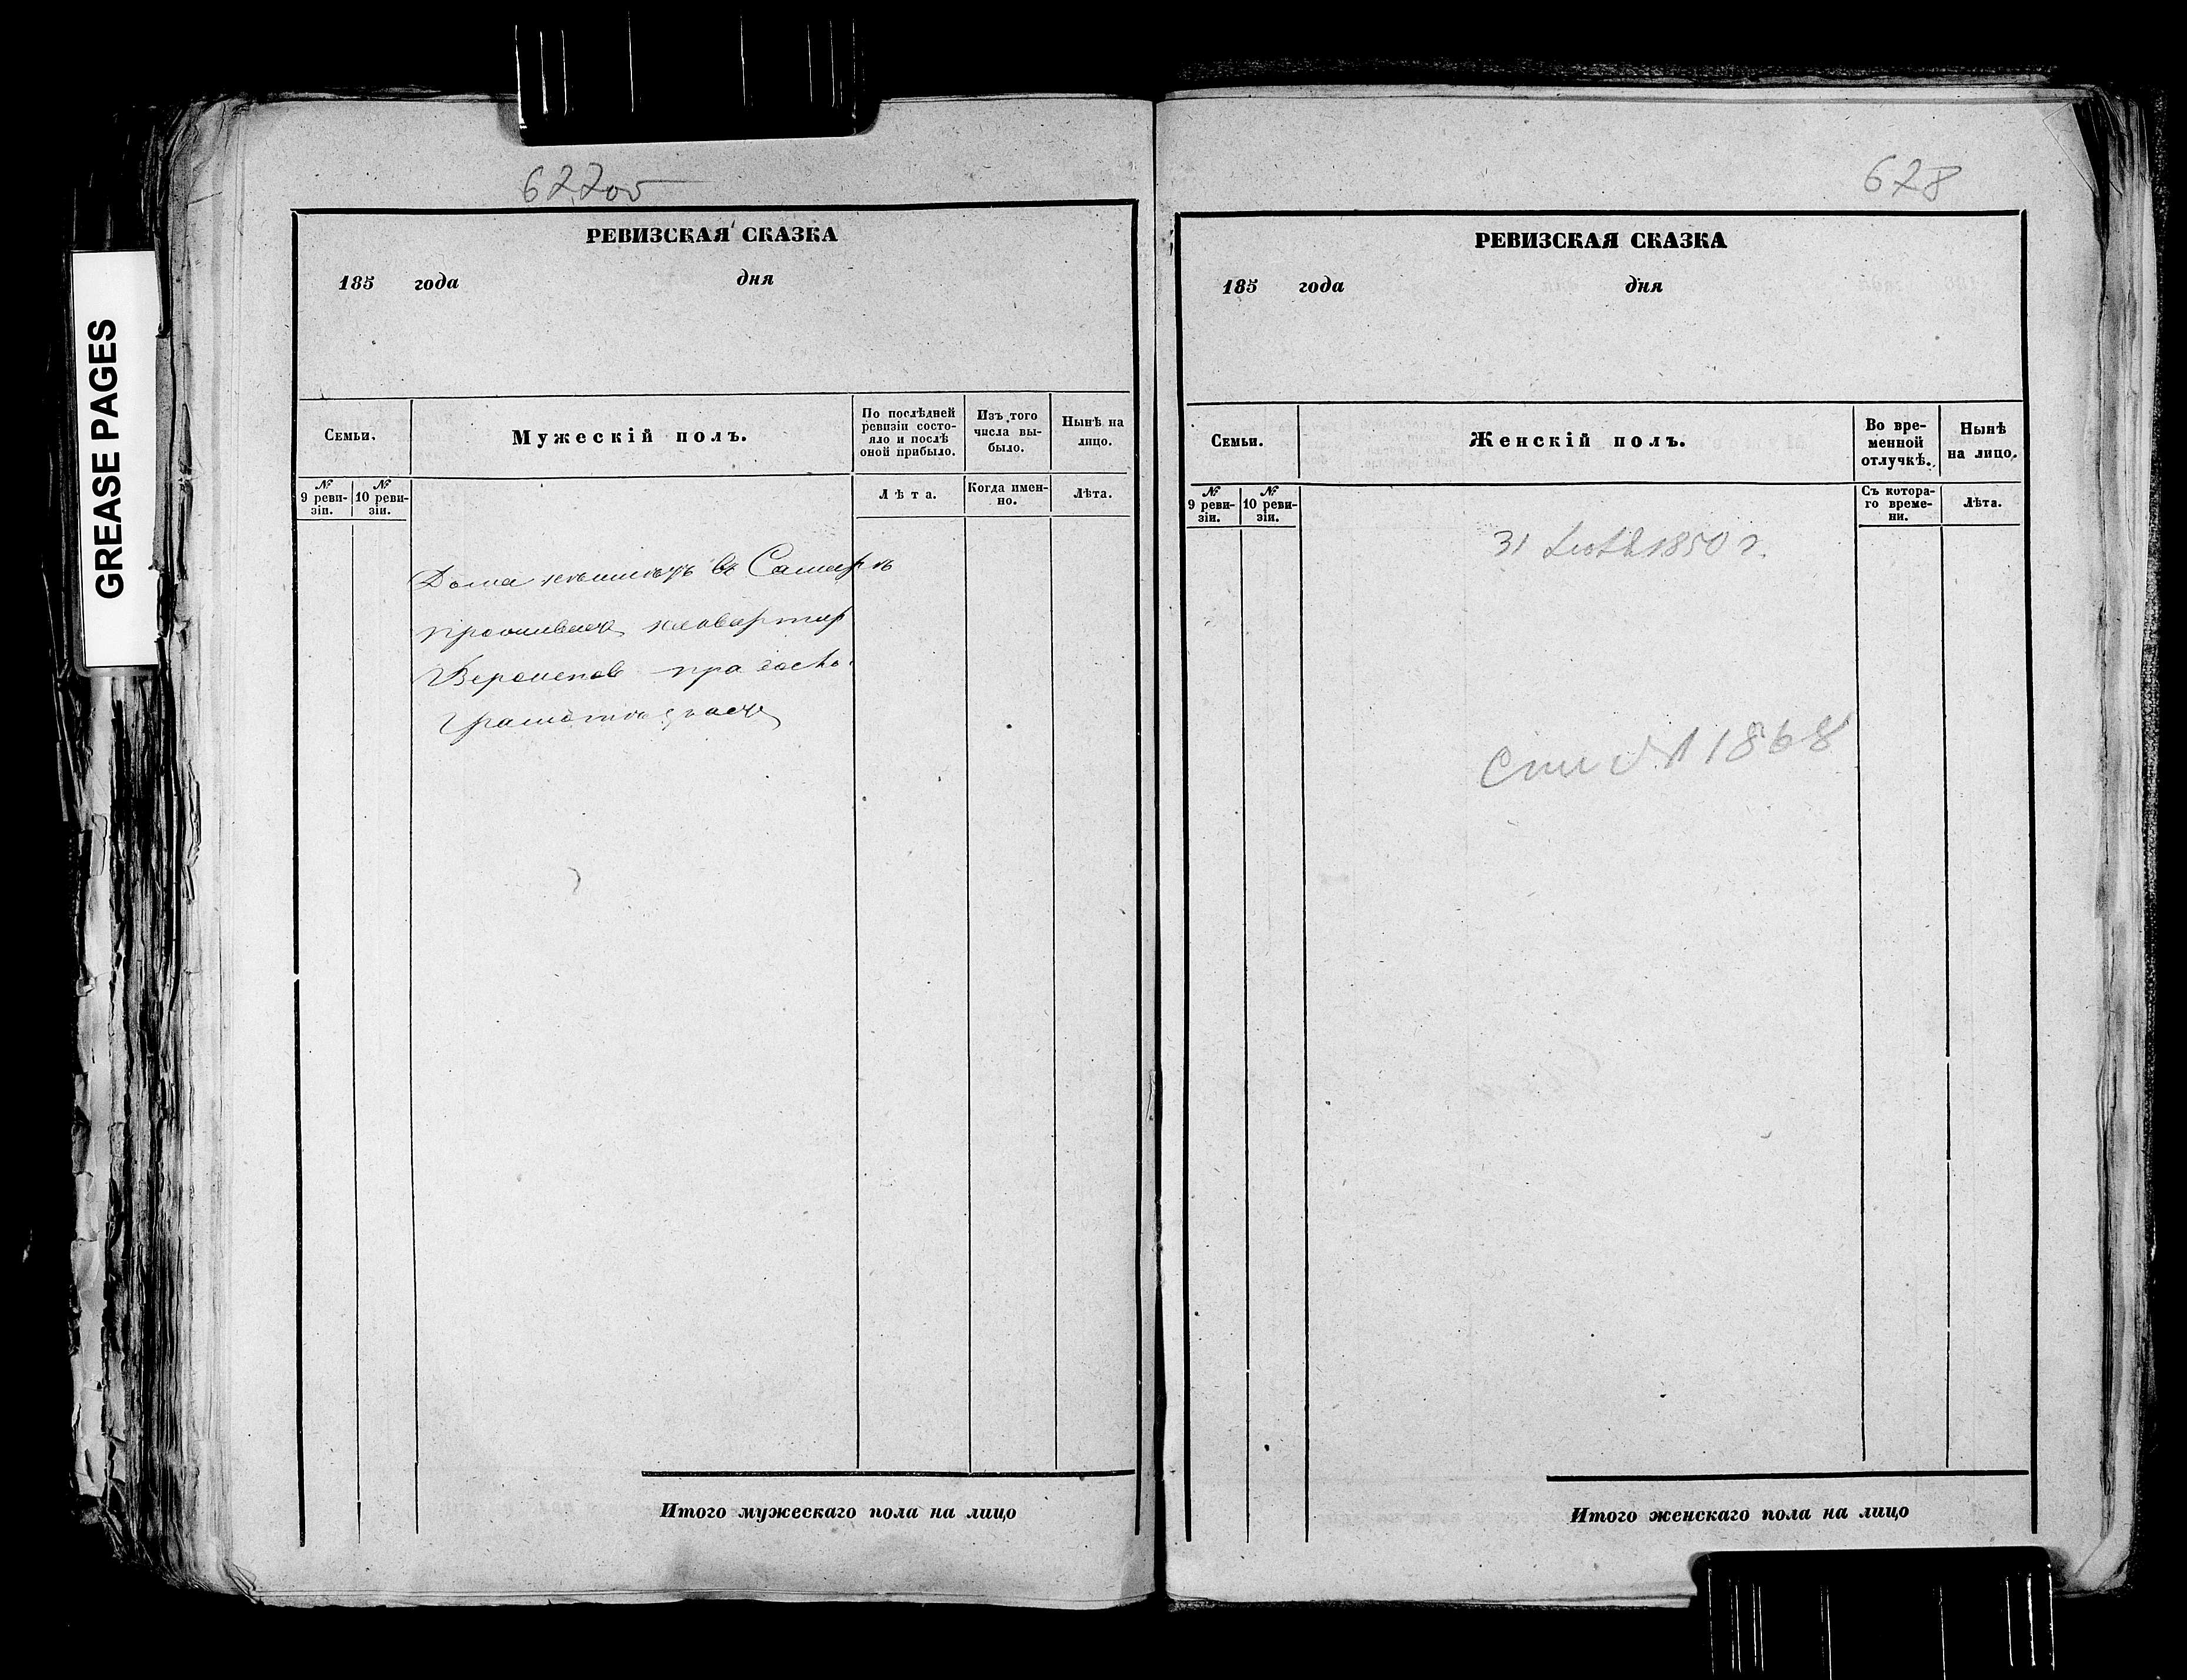 GREASE PAGES
627 об
РЕВИЗСКАЯ СКАЗКА
185 года дня
Семьи.
Мужескій полъ.
По послѣдней ревизіи состо-
яло и послѣ
оной прибыло.
Изъ того
числа вы-
было.
Нынѣ на
лицо.
№
9 реви-
зіи.
№
10 реви-
зіи.
Лѣта.
Когда имен-
но.
Лѣта.
Дома не имѣетъ въ Самарѣ
проживает
грамотѣ знает
Итого мужескаго пола на лицо
628
РЕВИЗСКАЯ СКАЗКА
185 года дня
Семьи.
Женскій полъ.
Во вре-
менной
отлучкѣ.
Нынѣ
на лицо.
№
9 реви-
зіи.
№
10 реви-
зіи.
Съ котора-
го време-
ни.
Лѣта.
31 1850 г.
1868
Итого женскаго пола на лицо